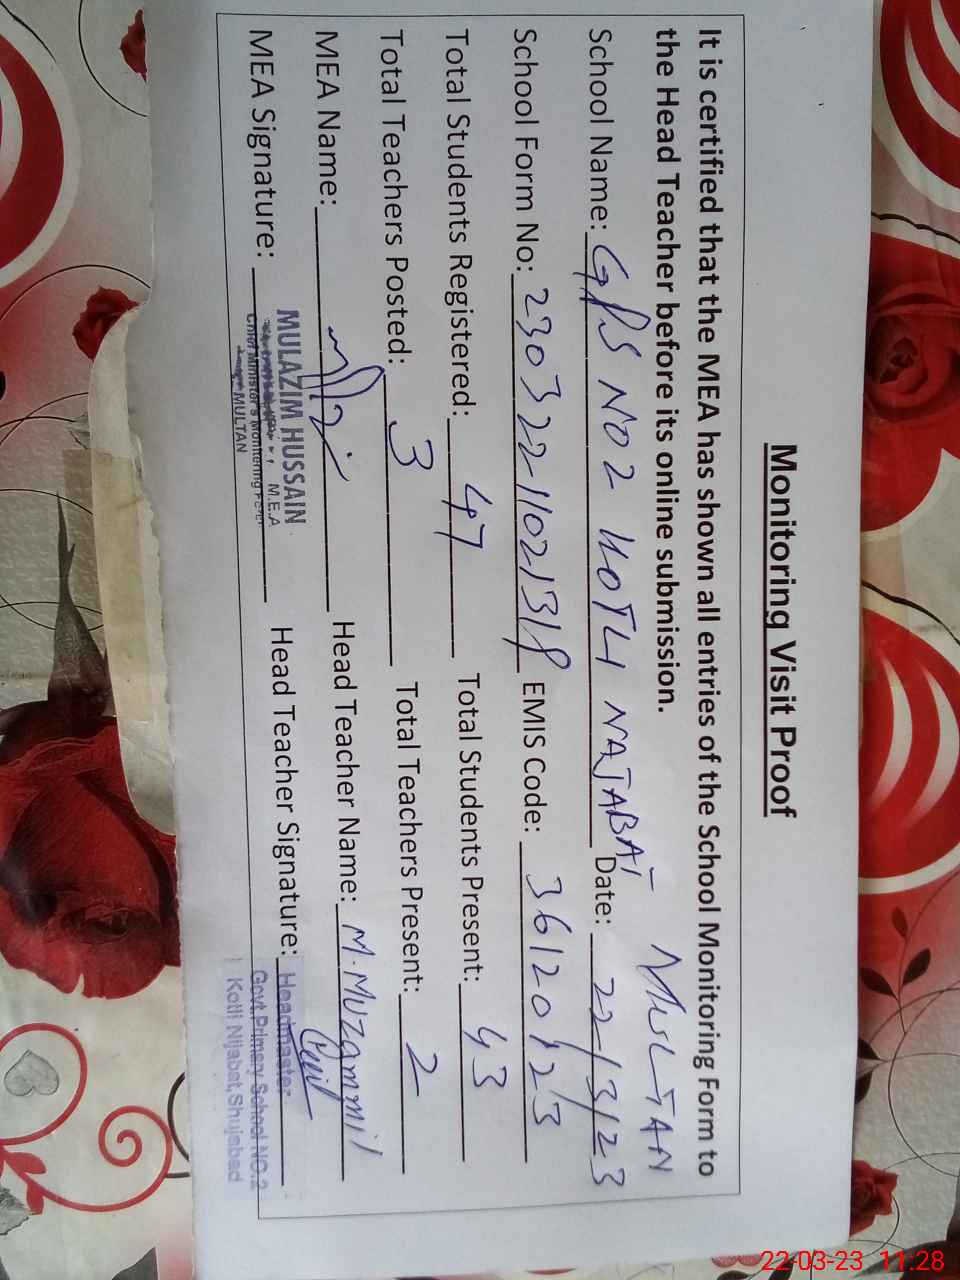 Monitoring Visit Proof
It is certified that the MEA has shown all entries of the School Monitoring Form to
the Head Teacher before its online submission.
MULTAN
School Name: GPS NO2 KOTLI NAJABAT Date: 22/3/23
School Form No: 230322-110213 EMIS Code: 36120123
Total Students Registered: 47 Total Students Present: 43
Total Teachers Posted: 3 Total Teachers Present: 2
MEA Name: Head Teacher Name: M. Muzammil
MEA Signature: Head Teacher Signature:
MULAZIM HUSSAIN
M.E.A
Chief Minister's Monitoring Force
MULTAN
Headmaster
Govt.Primary School NO.2
Kotli Nijabat,Shujabad
22-03-23 11:28